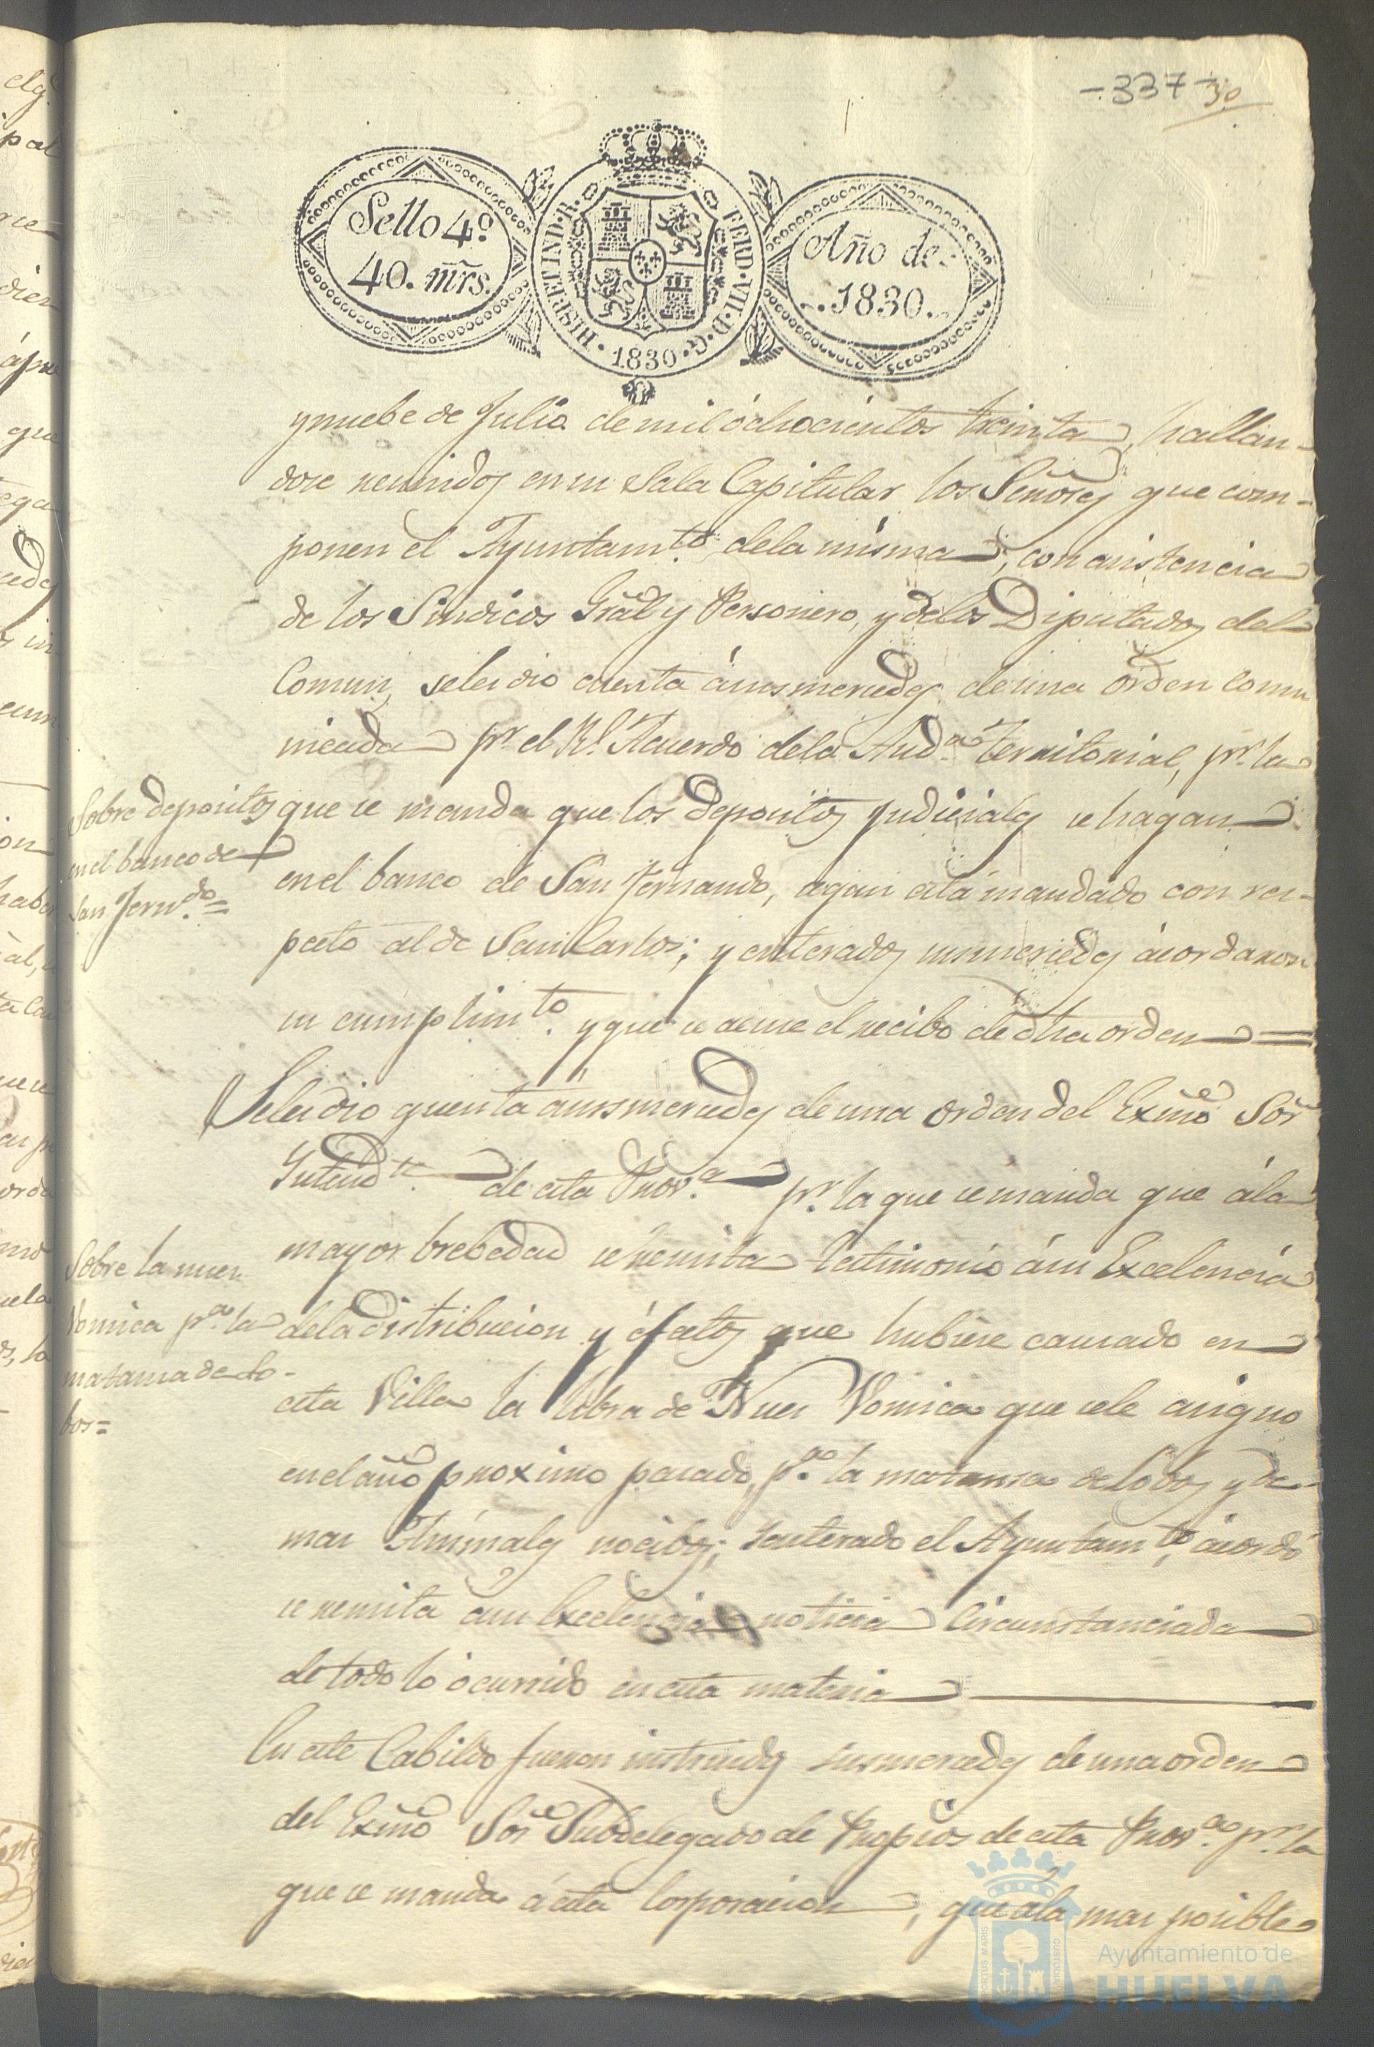 -337- 30
Sello 4º.
40. mrs.
HISP. ET IND. R. FERD. VII. D. G. 1830
Año de
1830.
y nuebe de Julio de mil óchocientos treinta, hallan-
dose reunidos en su Sala Capitular los Señores que com-
ponen el Ayuntamto. dela misma, con asistencia
de los Sindicos Gral y Personero, y delos Diputados del
Comun, seles dio cuenta ásusmercedes de una orden comu
nicada pr. el Rl. Acuerdo dela Auda. territorial, pr. la
que se manda que los depositos judiciales se hagan
en el banco de San Fernando, segun está mandado con res-
pecto al de San Carlos; y enterados susmercedes ácordaron
su cumplimto. y que se acuse el recibo de dha orden =
Sobre depositos
en el banco de
San Ferndo. =
Seles dio quenta ásusmercedes de una orden del Exmo Sor
Intendte. de esta Prova. pr. la que se manda que ála
mayor brebedad se remita testimonio ásu Excelencia
dela distribucion y éfectos que hubiere causado en
esta Villa la libra de Nuez Vomica que sele asigno
en el año proximo pasado, pa. la matansa de lobos y de-
mas Animales nocibos; y enterado el Ayuntamto. ácordó
se remita ásu Excelencia noticia Circunstanciada
de todo lo ócurrido en esta materia
Sobre la nuez
Vomica pa. la
matansa de lo-
bos=
En este Cabildo fueron instruidos susmercedes de una orden
del Exmo Sor Subdelegado de Propios de esta Prova. pr. la
que se manda áesta Corporacion, que ála mas posible
Ayuntamiento de
HUELVA